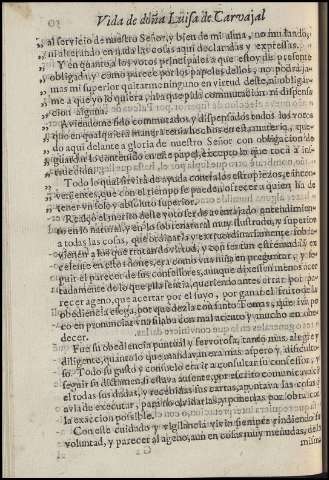 Vida de doña Luisa de Carvajal
al servicio de nuestro Señor, y bien de mi alma, no mudando,
ni alterando en nada las cosas aqui declaradas y expressas.
Y en quanto a los votos principales a que estoy de presente
obligada, y como parece por los papeles dellos, no podrà ja-
mas mi superior quitarme ninguno en virtud deste, ni obligar-
me a que yo lo quiera, ni la que pida commutacion, ni dispensa
cion alguna.
Aviendome sido commutados, y dispensados todos los votos
que en qualquiera manera tenia hechos en esta materia, que-
do aqui delante a gloria de nuestro Señor con obligacion de
guardar lo contenido en este papel, excepto lo que toca a in-
struccion.
Todo lo qual serà de ayuda contra los estropieços, e incon-
vergentes, que con el tiempo se pueden ofrecer a quien
tener un solo y absoluto superior.
el merito deste voto ser de aventajado entendimien-
to en lo natural, y en lo sobrenatural muy ilustrado, y superior
a todas las cosas, que
vienen a los que tratan de virtud, y con ser tan estremada y ex
celente en estos dones, era como una niña en preguntar, y se-
guir el parecer de sus confessores, aunque dixessen menos acer
tadamente de lo que ella sentia, queriendo antes errar por pa-
recer ageno, que acertar por el suyo, por ganar el fruto de la
obediencia ciega, por que dezia con santo Tomas, que iva po
co en pronunciar una silaba con mal acento, y mucho en obe-
decer.
Fue su obediencia puntual y fervorosa, tando mas alegre y
diligente, quanto lo que mandavan era mas aspero y dificulto-
so. Todo su gusto y consuelo era ir a consultar su confessor, y
seguir su dictamen, si estava ausente, por escrito comunicava
el todas sus dudas, y recebidas sus cartas, apuntava las cosas
avia de executar, para no olvidarlas, y ponerlas por obra con
la exaccion possible.
Con este cuidado y vigilancia vivio siempre rindiendo su
voluntad, y parecer al ageno, aun en cosas muy menudas, de la